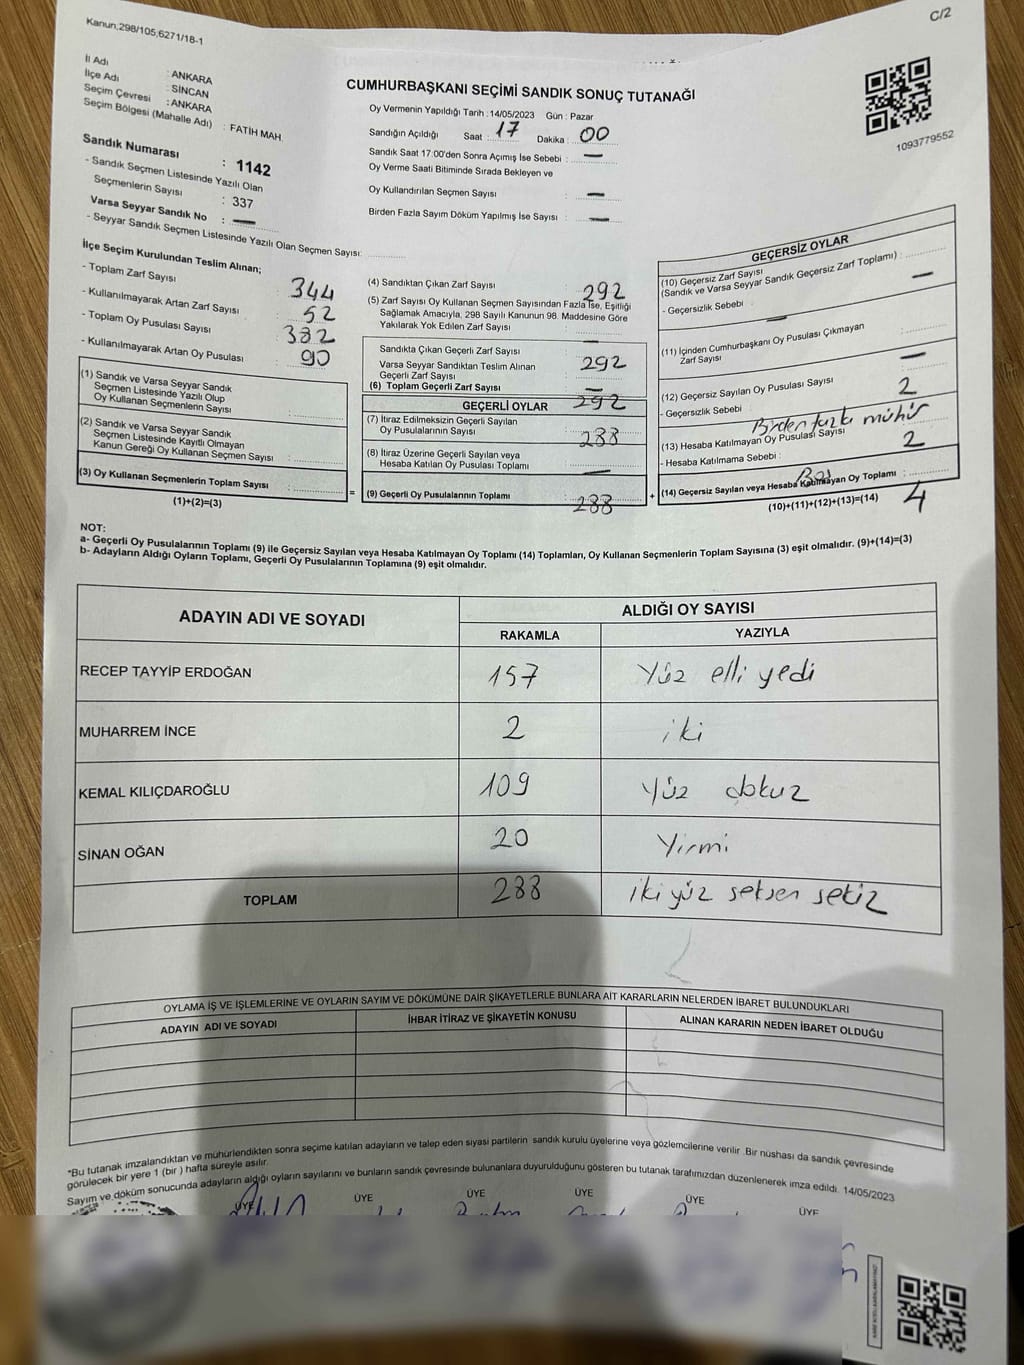 Kanun;298/105,6271/18-1
C/2
İl Adı : ANKARA
İlçe Adı : SİNCAN
Seçim Çevresi : ANKARA
Seçim Bölgesi (Mahalle Adı) : FATİH MAH.
Sandık Numarası : 1142
- Sandık Seçmen Listesinde Yazılı Olan
Seçmenlerin Sayısı : 337
Varsa Seyyar Sandık No : —
- Seyyar Sandık Seçmen Listesinde Yazılı Olan Seçmen Sayısı:
CUMHURBAŞKANI SEÇİMİ SANDIK SONUÇ TUTANAĞI
Oy Vermenin Yapıldığı Tarih : 14/05/2023 Gün : Pazar
Sandığın Açıldığı Saat : 17 Dakika : 00
Sandık Saat 17:00'den Sonra Açımış İse Sebebi : —
Oy Verme Saati Bitiminde Sırada Bekleyen ve
Oy Kullandırılan Seçmen Sayısı : —
Birden Fazla Sayım Döküm Yapılmış İse Sayısı : —
1093779552
İlçe Seçim Kurulundan Teslim Alınan;
- Toplam Zarf Sayısı : 344
- Kullanılmayarak Artan Zarf Sayısı : 52
- Toplam Oy Pusulası Sayısı : 382
- Kullanılmayarak Artan Oy Pusulası : 90
(1) Sandık ve Varsa Seyyar Sandık
Seçmen Listesinde Yazılı Olup
Oy Kullanan Seçmenlerin Sayısı :
(2) Sandık ve Varsa Seyyar Sandık
Seçmen Listesinde Kayıtlı Olmayan
Kanun Gereği Oy Kullanan Seçmen Sayısı :
(3) Oy Kullanan Seçmenlerin Toplam Sayısı :
(1)+(2)=(3)
(4) Sandıktan Çıkan Zarf Sayısı : 292
(5) Zarf Sayısı Oy Kullanan Seçmen Sayısından Fazla İse, Eşitliği
Sağlamak Amacıyla, 298 Sayılı Kanunun 98. Maddesine Göre
Yakılarak Yok Edilen Zarf Sayısı : —
Sandıkta Çıkan Geçerli Zarf Sayısı : 292
Varsa Seyyar Sandıktan Teslim Alınan
Geçerli Zarf Sayısı : —
(6) Toplam Geçerli Zarf Sayısı : 292
GEÇERLİ OYLAR
(7) İtiraz Edilmeksizin Geçerli Sayılan
Oy Pusulalarının Sayısı : 288
(8) İtiraz Üzerine Geçerli Sayılan veya
Hesaba Katılan Oy Pusulası Toplamı : —
= (9) Geçerli Oy Pusulalarının Toplamı : 288 +
GEÇERSİZ OYLAR
(10) Geçersiz Zarf Sayısı
(Sandık ve Varsa Seyyar Sandık Geçersiz Zarf Toplamı) : —
- Geçersizlik Sebebi : —
(11) İçinden Cumhurbaşkanı Oy Pusulası Çıkmayan
Zarf Sayısı : —
(12) Geçersiz Sayılan Oy Pusulası Sayısı : 2
- Geçersizlik Sebebi : Birden fazla mühür
(13) Hesaba Katılmayan Oy Pusulası Sayısı : 2
- Hesaba Katılmama Sebebi : Boş
(14) Geçersiz Sayılan veya Hesaba Katılmayan Oy Toplamı : 4
(10)+(11)+(12)+(13)=(14)
NOT:
a- Geçerli Oy Pusulalarının Toplamı (9) ile Geçersiz Sayılan veya Hesaba Katılmayan Oy Toplamı (14) Toplamları, Oy Kullanan Seçmenlerin Toplam Sayısına (3) eşit olmalıdır. (9)+(14)=(3)
b- Adayların Aldığı Oyların Toplamı, Geçerli Oy Pusulalarının Toplamına (9) eşit olmalıdır.
ADAYIN ADI VE SOYADI
ALDIĞI OY SAYISI
RAKAMLA YAZIYLA
RECEP TAYYİP ERDOĞAN 157 Yüz elli yedi
MUHARREM İNCE 2 iki
KEMAL KILIÇDAROĞLU 109 Yüz dokuz
SİNAN OĞAN 20 Yirmi
TOPLAM 288 iki yüz seksen sekiz
OYLAMA İŞ VE İŞLEMLERİNE VE OYLARIN SAYIM VE DÖKÜMÜNE DAİR ŞİKAYETLERLE BUNLARA AİT KARARLARIN NELERDEN İBARET BULUNDUKLARI
ADAYIN ADI VE SOYADI İHBAR İTİRAZ VE ŞİKAYETİN KONUSU ALINAN KARARIN NEDEN İBARET OLDUĞU
*Bu tutanak imzalandıktan ve mühürlendikten sonra seçime katılan adayların ve talep eden siyasi partilerin sandık kurulu üyelerine veya gözlemcilerine verilir .Bir nüshası da sandık çevresinde
görülecek bir yere 1 (bir ) hafta süreyle asılır.
Sayım ve döküm sonucunda adayların aldığı oyların sayılarını ve bunların sandık çevresinde bulunanlara duyurulduğunu gösteren bu tutanak tarafımızdan düzenlenerek imza edildi. 14/05/2023
ÜYE ÜYE ÜYE ÜYE ÜYE ÜYE